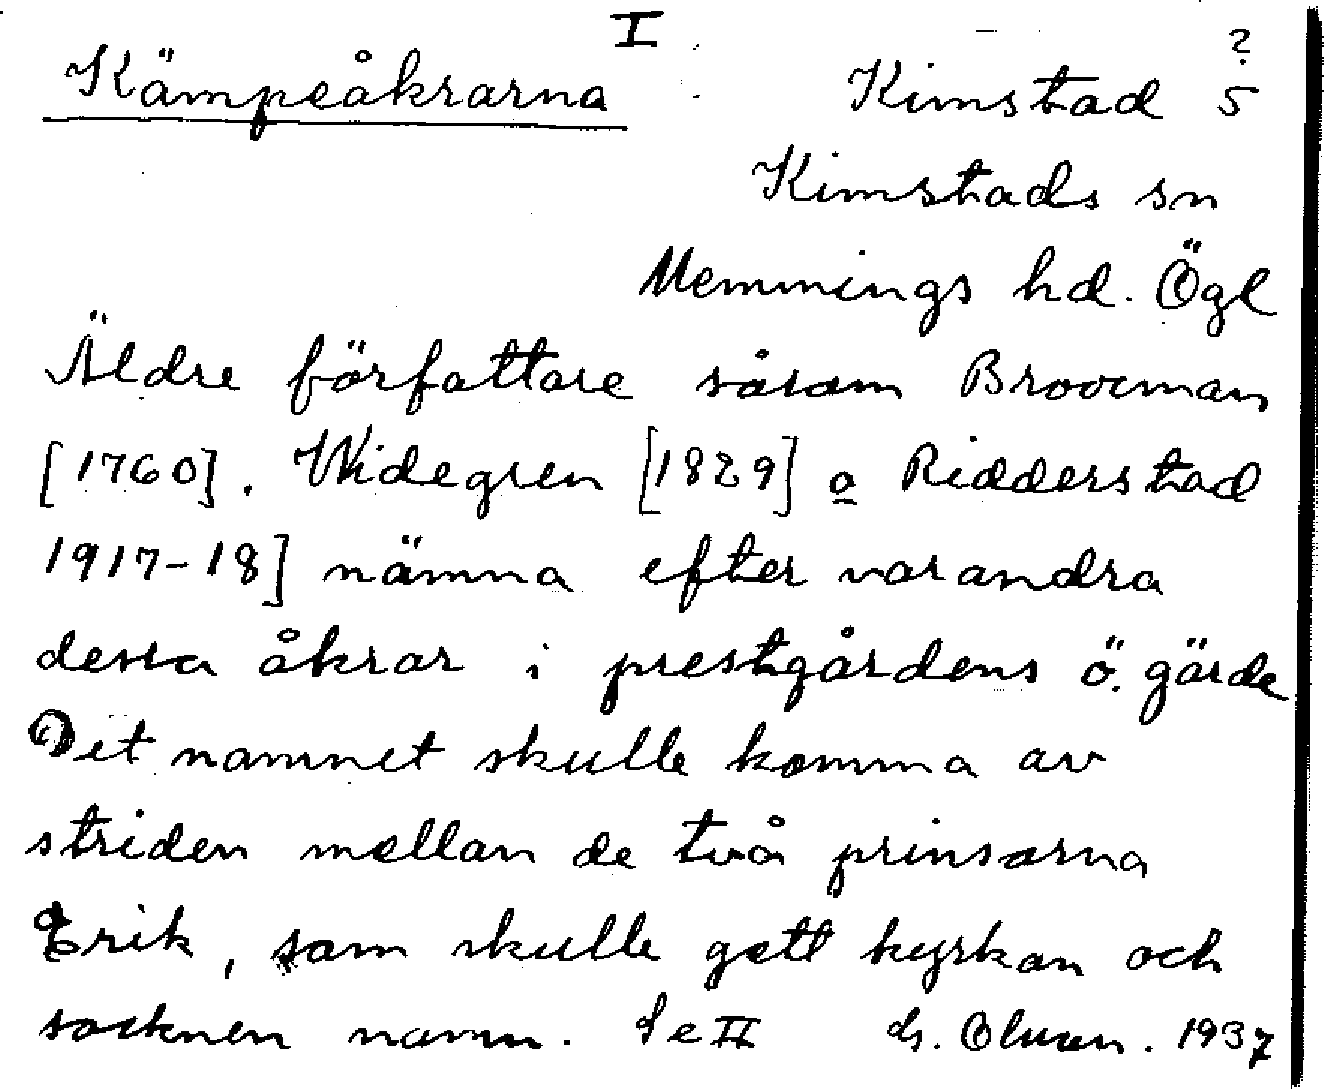 I
Kämpeåkrarna Kimstad ?5
Kimstads sn
Memmings hd. Ögl
Äldre författare såsom Broocman
[1760], Widegren [1829] o Ridderstad
1917-18] nämna efter varandra
dessa åkrar i prestgårdens ö. gärde
Det namnet skulle komma av
striden mellan de två prinsarna
Erik, som skulle gett kyrkan och
socknen namn. Se II 1937